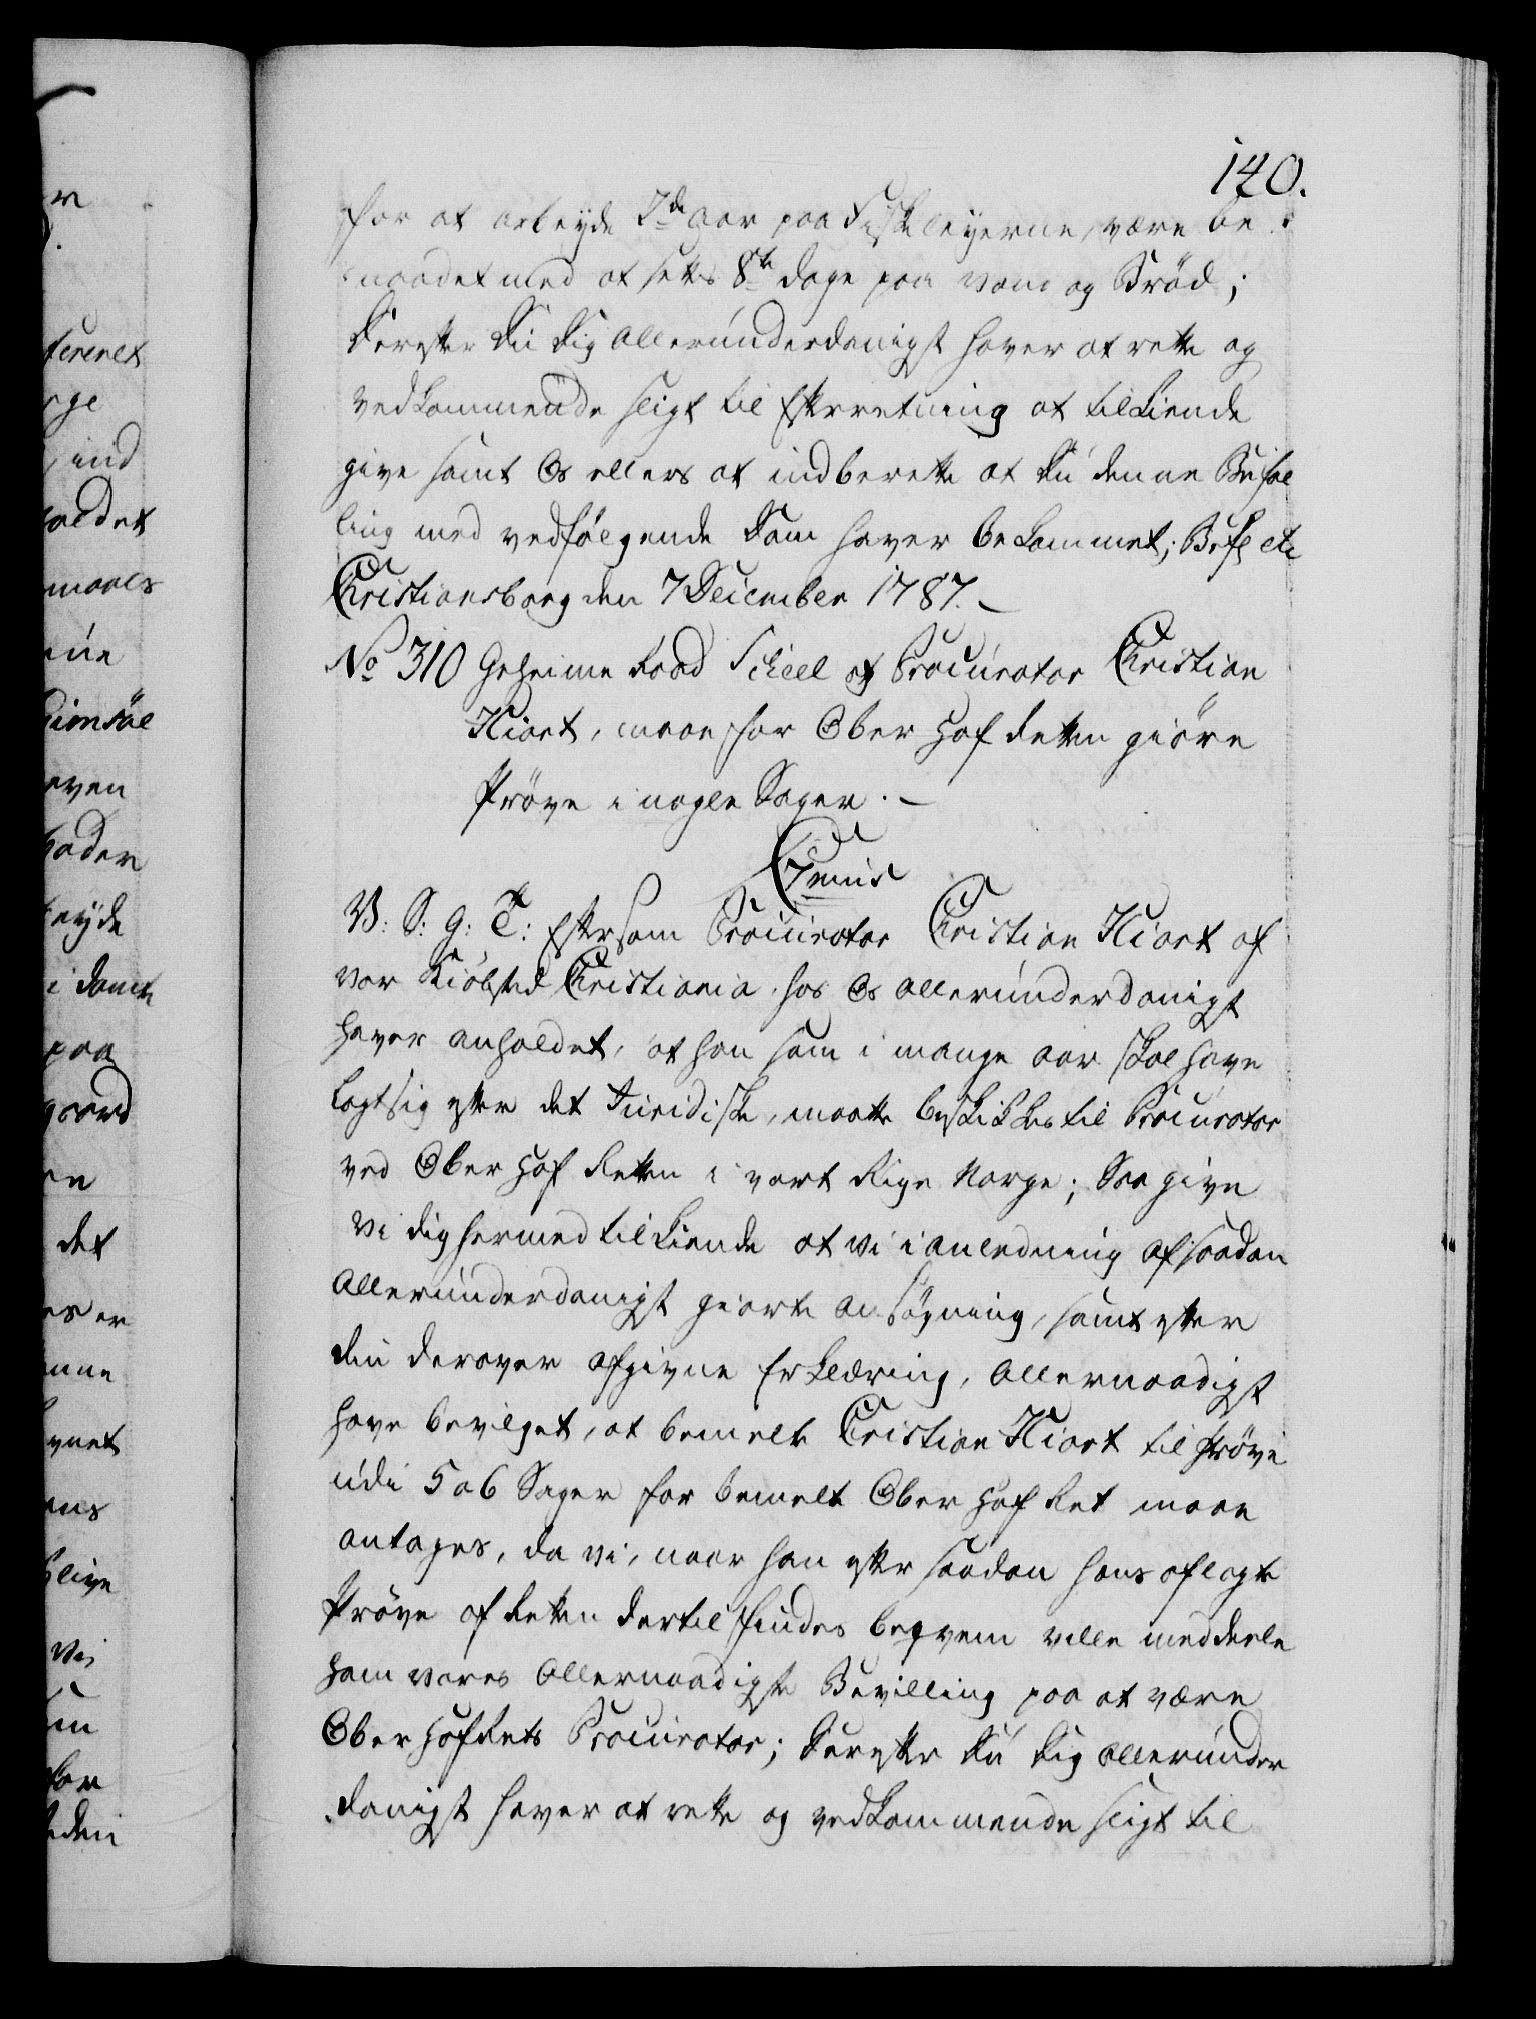 140.
for at arbeyde 7de Aar paa Fiskeleyerne, være be-
naadet med at sættes 8te dage paa vand og Brød;
Derefter Du Dig allerúnderdanigst haver at rette og
vedkommende sligt til Efterretning at tilkiende
give samt Os ellers at indberette at Dú denne Befal
ling med vedfølgende Dom haver bekommet; Befl etc
Christiansborg den 7 December 1787.-
No 310 Geheime Raad Scheel at Procúrator Christian
Hiort, maae for Ober Hof Retten giøre
Prøve i nogle Sager.-
C7mus
V: S: G: T: Eftersom Procúrator Christian Hiort af
vor Kiøbsted Christiania hos Os allerúnderdanigst
haver anholdet, at han som i mange aar skal have
lagt sig efter det Júridiske, maatte beskikkes til Procúrator
ved Ober Hof Retten i vort Rige Norge; Saa give
vi dig hermed tilkiende at vi i anledning af saadan
allerúnderdanigst giorte ansøgning, samt efter
din derover afgivne Erklæring, allernaadigst
have bevilget, at bemelte Christian Hiort til Prøve
údi 5 a 6 Sager for bemelte Ober Hof Ret maae
antages, da vi, naar han efter saadan hans aflagte
Prøve af Retten dertil findes beqvem ville meddeele
ham vores allernaadigste Bevilling paa at være
Ober Hof Rets Procúrator; Derefter Dú Dig allerúnder
danigst haver at rette og vedkommende sligt til